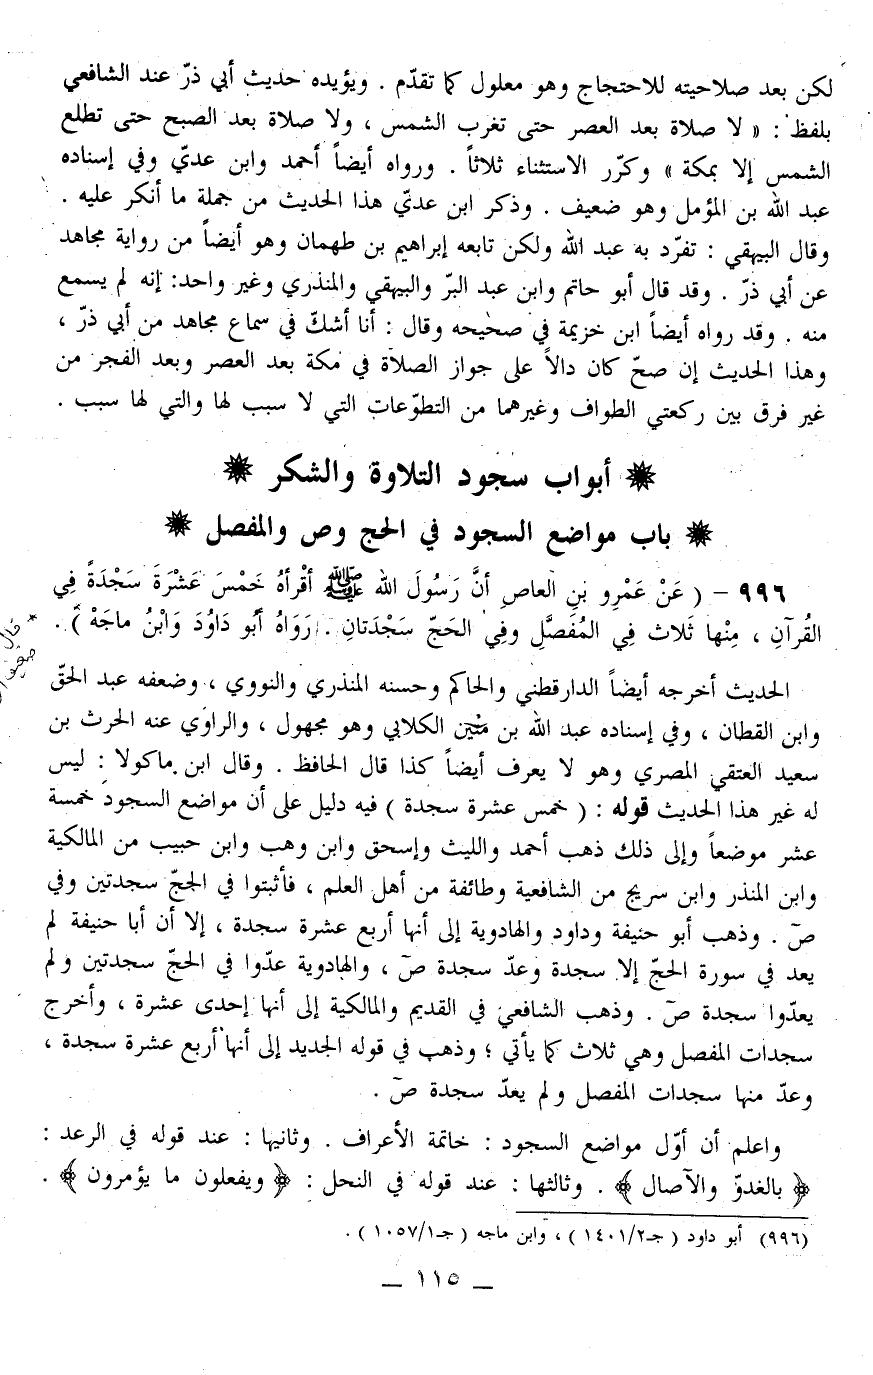 لكن بعد صلاحيته للاحتجاج وهو معلول كما تقدّم . ويؤيده حديث أبي ذرّ عند الشافعي
بلفظ : « لا صلاة بعد العصر حتى تغرب الشمس ، ولا صلاة بعد الصبح حتى تطلع
الشمس إلا بمكة » وكرّر الاستثناء ثلاثاً . ورواه أيضاً أحمد وابن عديّ وفي إسناده
عبد الله بن المؤمل وهو ضعيف . وذكر ابن عديّ هذا الحديث من جملة ما أنكر عليه .
وقال البيهقي : تفرّد به عبد الله ولكن تابعه إبراهيم بن طهمان وهو أيضاً من رواية مجاهد
عن أبي ذرّ . وقد قال أبو حاتم وابن عبد البرّ والبيهقي والمنذري وغير واحد: إنه لم يسمع
منه . وقد رواه أيضاً ابن خزيمة في صحيحه وقال : أنا أشكّ في سماع مجاهد من أبي ذرّ ،
وهذا الحديث إن صحّ كان دالاً على جواز الصلاة في مكة بعد العصر وبعد الفجر من
غير فرق بين ركعتي الطواف وغيرهما من التطوّعات التي لا سبب لها والتي لها سبب .
أبواب سجود التلاوة والشكر
باب مواضع السجود في الحج وص والمفصل
٩٩٦ – ( عَنْ عَمْرِو بنِ العاصِ أنَّ رَسُولَ الله ﷺ أقْرأهُ خَمْسَ عَشْرَةَ سَجْدَةً فِي
القُرآنِ ، مِنْها ثَلاث فِي المُفَصَّلِ وفِي الحَجّ سَجْدَتانِ . رَوَاهُ أبُو دَاوُدَ وَابْنُ ماجَهْ ) .
الحديث أخرجه أيضاً الدارقطني والحاكم وحسنه المنذري والنووي ، وضعفه عبد الحقّ
وابن القطان ، وفي إسناده عبد الله بن مَنْين الكلابي وهو مجهول ، والراوي عنه الحرث بن
سعيد العتقي المصري وهو لا يعرف أيضاً كذا قال الحافظ . وقال ابن ماكولا : ليس
له غير هذا الحديث قوله : ( خمس عشرة سجدة ) فيه دليل على أن مواضع السجود خمسة
عشر موضعاً وإلى ذلك ذهب أحمد والليث وإسحق وابن وهب وابن حبيب من المالكية
وابن المنذر وابن سريج من الشافعية وطائفة من أهل العلم ، فأثبتوا في الحجّ سجدتين وفي
صۤ . وذهب أبو حنيفة وداود والهادوية إلى أنها أربع عشرة سجدة ، إلا أن أبا حنيفة لم
يعد في سورة الحجّ إلا سجدة وعدّ سجدة صۤ ، والهادوية عدّوا في الحجّ سجدتين ولم
يعدّوا سجدة صۤ . وذهب الشافعي في القديم والمالكية إلى أنها إحدى عشرة ، وأخرج
سجدات المفصل وهي ثلاث كما يأتي ؛ وذهب في قوله الجديد إلى أنها أربع عشرة سجدة ،
وعدّ منها سجدات المفصل ولم يعدّ سجدة صۤ .
واعلم أن أوّل مواضع السجود : خاتمة الأعراف . وثانيها : عند قوله في الرعد :
﴿ بالغدوّ والآصال ﴾ . وثالثها : عند قوله في النحل : ﴿ ويفعلون ما يؤمرون ﴾ .
(٩٩٦) أبو داود ( جـ٢/١٤٠١ ) ، وابن ماجه ( جـ١/١٠٥٧ ) .
— ١١٥ —